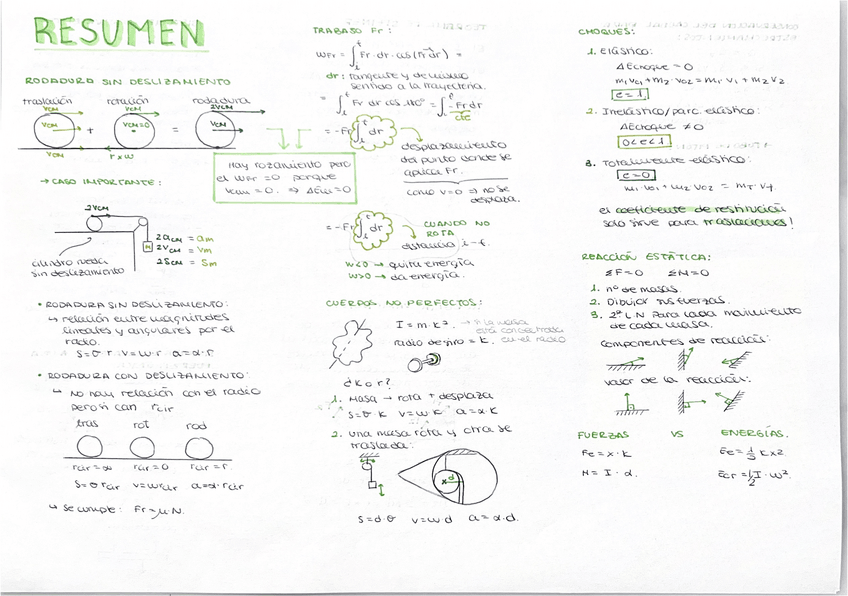 RESUMEN
RODADURA SIN DESLIZAMIENTO
traslación rotación rodadura
VCM VCM 2VCM
VCM + VCM=0 = VCM
VCM r×w
Hay rozamiento pero
el WFr =0 porque
Vcm = 0. ⇒ ΔEm=0
→ CASO IMPORTANTE:
2VCM
2aCM = am
2VCM = Vm
2SCM = Sm
M
cilindro rueda
sin deslizamiento
• RODADURA SIN DESLIZAMIENTO:
↳ relación entre magnitudes
lineales y angulares por el
radio.
S=θ·r v=w·r a=α·r
• RODADURA CON DESLIZAMIENTO:
↳ No hay relación con el radio
pero sí con rcir
tras rot rod
rcir=∞ rcir=0 rcir=r.
S=θ·rcir v=w·rcir a=α·rcir
↳ Se cumple: Fr=μ·N.
TRABAJO Fr:
WFr = ∫ Fr·dr·cos(Fr dr) =
dr: tangente y de mismo
sentido a la trayectoria.
= ∫ Fr dr cos 180° = ∫ -Fr dr
cte
= -Fr ∫ dr
desplazamiento
del punto donde se
aplica Fr.
como v=0 ⇒ no se
desplaza.
= -Fr ∫ dr
CUANDO NO
ROTA
distancia i-f.
W<0 → quita energía
W>0 → da energía.
CUERPOS NO PERFECTOS:
I = m·k².
está concentrada
radio de giro = k. en el radio
d k o r?
1. Masa → rota + desplaza
S=θ·k v=w·k a=α·k
2. una masa rota y otra se
traslada:
d
S=d·θ v=w·d a=α·d.
CHOQUES:
1. Elástico:
ΔEchoque = 0
m₁v₀₁+m₂·v₀₂=m₁v₁+m₂v₂
e=1
2. Inelástico/parc. elástico:
ΔEchoque ≠0
0<e<1
3. Totalmente elástico:
e=0
m₁v₀₁+m₂v₀₂ = mT vf.
el coeficiente de restitución
solo sirve para traslaciones!
REACCIÓN ESTÁTICA:
ΣF=0 ΣM=0
1. nº de masas.
2. Dibujar sus fuerzas.
3. 2ª L.N para cada movimiento
de cada masa.
componentes de reacción:
valor de la reacción:
FUERZAS VS ENERGÍAS.
Fe=x·k Ee=½ kx²
M=I·α. Ecr=½I·w².